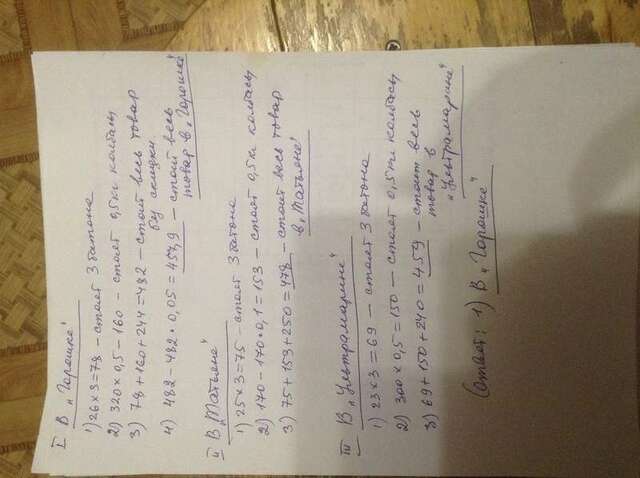 I В „Горошке"
1) 26 × 3 = 78 – стоят 3 батона
2) 320 × 0,5 – 160 – стоят 0,5 кг колбасы
3) 78 + 160 + 244 = 482 – стоит весь товар
без скидки.
4) 482 – 482 · 0,05 = 457,9 – стоит весь
товар в „Горошке"
II В „Татьяне"
1) 25 × 3 = 75 – стоят 3 батона
2) 170 – 170 · 0,1 = 153 – стоят 0,5 кг колбасы
3) 75 + 153 + 250 = 478 – стоит весь товар
в „Татьяне"
III В „Ультрамарине"
1) 23 × 3 = 69 – стоят 3 батона
2) 300 × 0,5 = 150 – стоят 0,5 кг колбасы
3) 69 + 150 + 240 = 459 – стоит весь
товар в
„Ультрамарине"
Ответ: 1) В „Горошке"